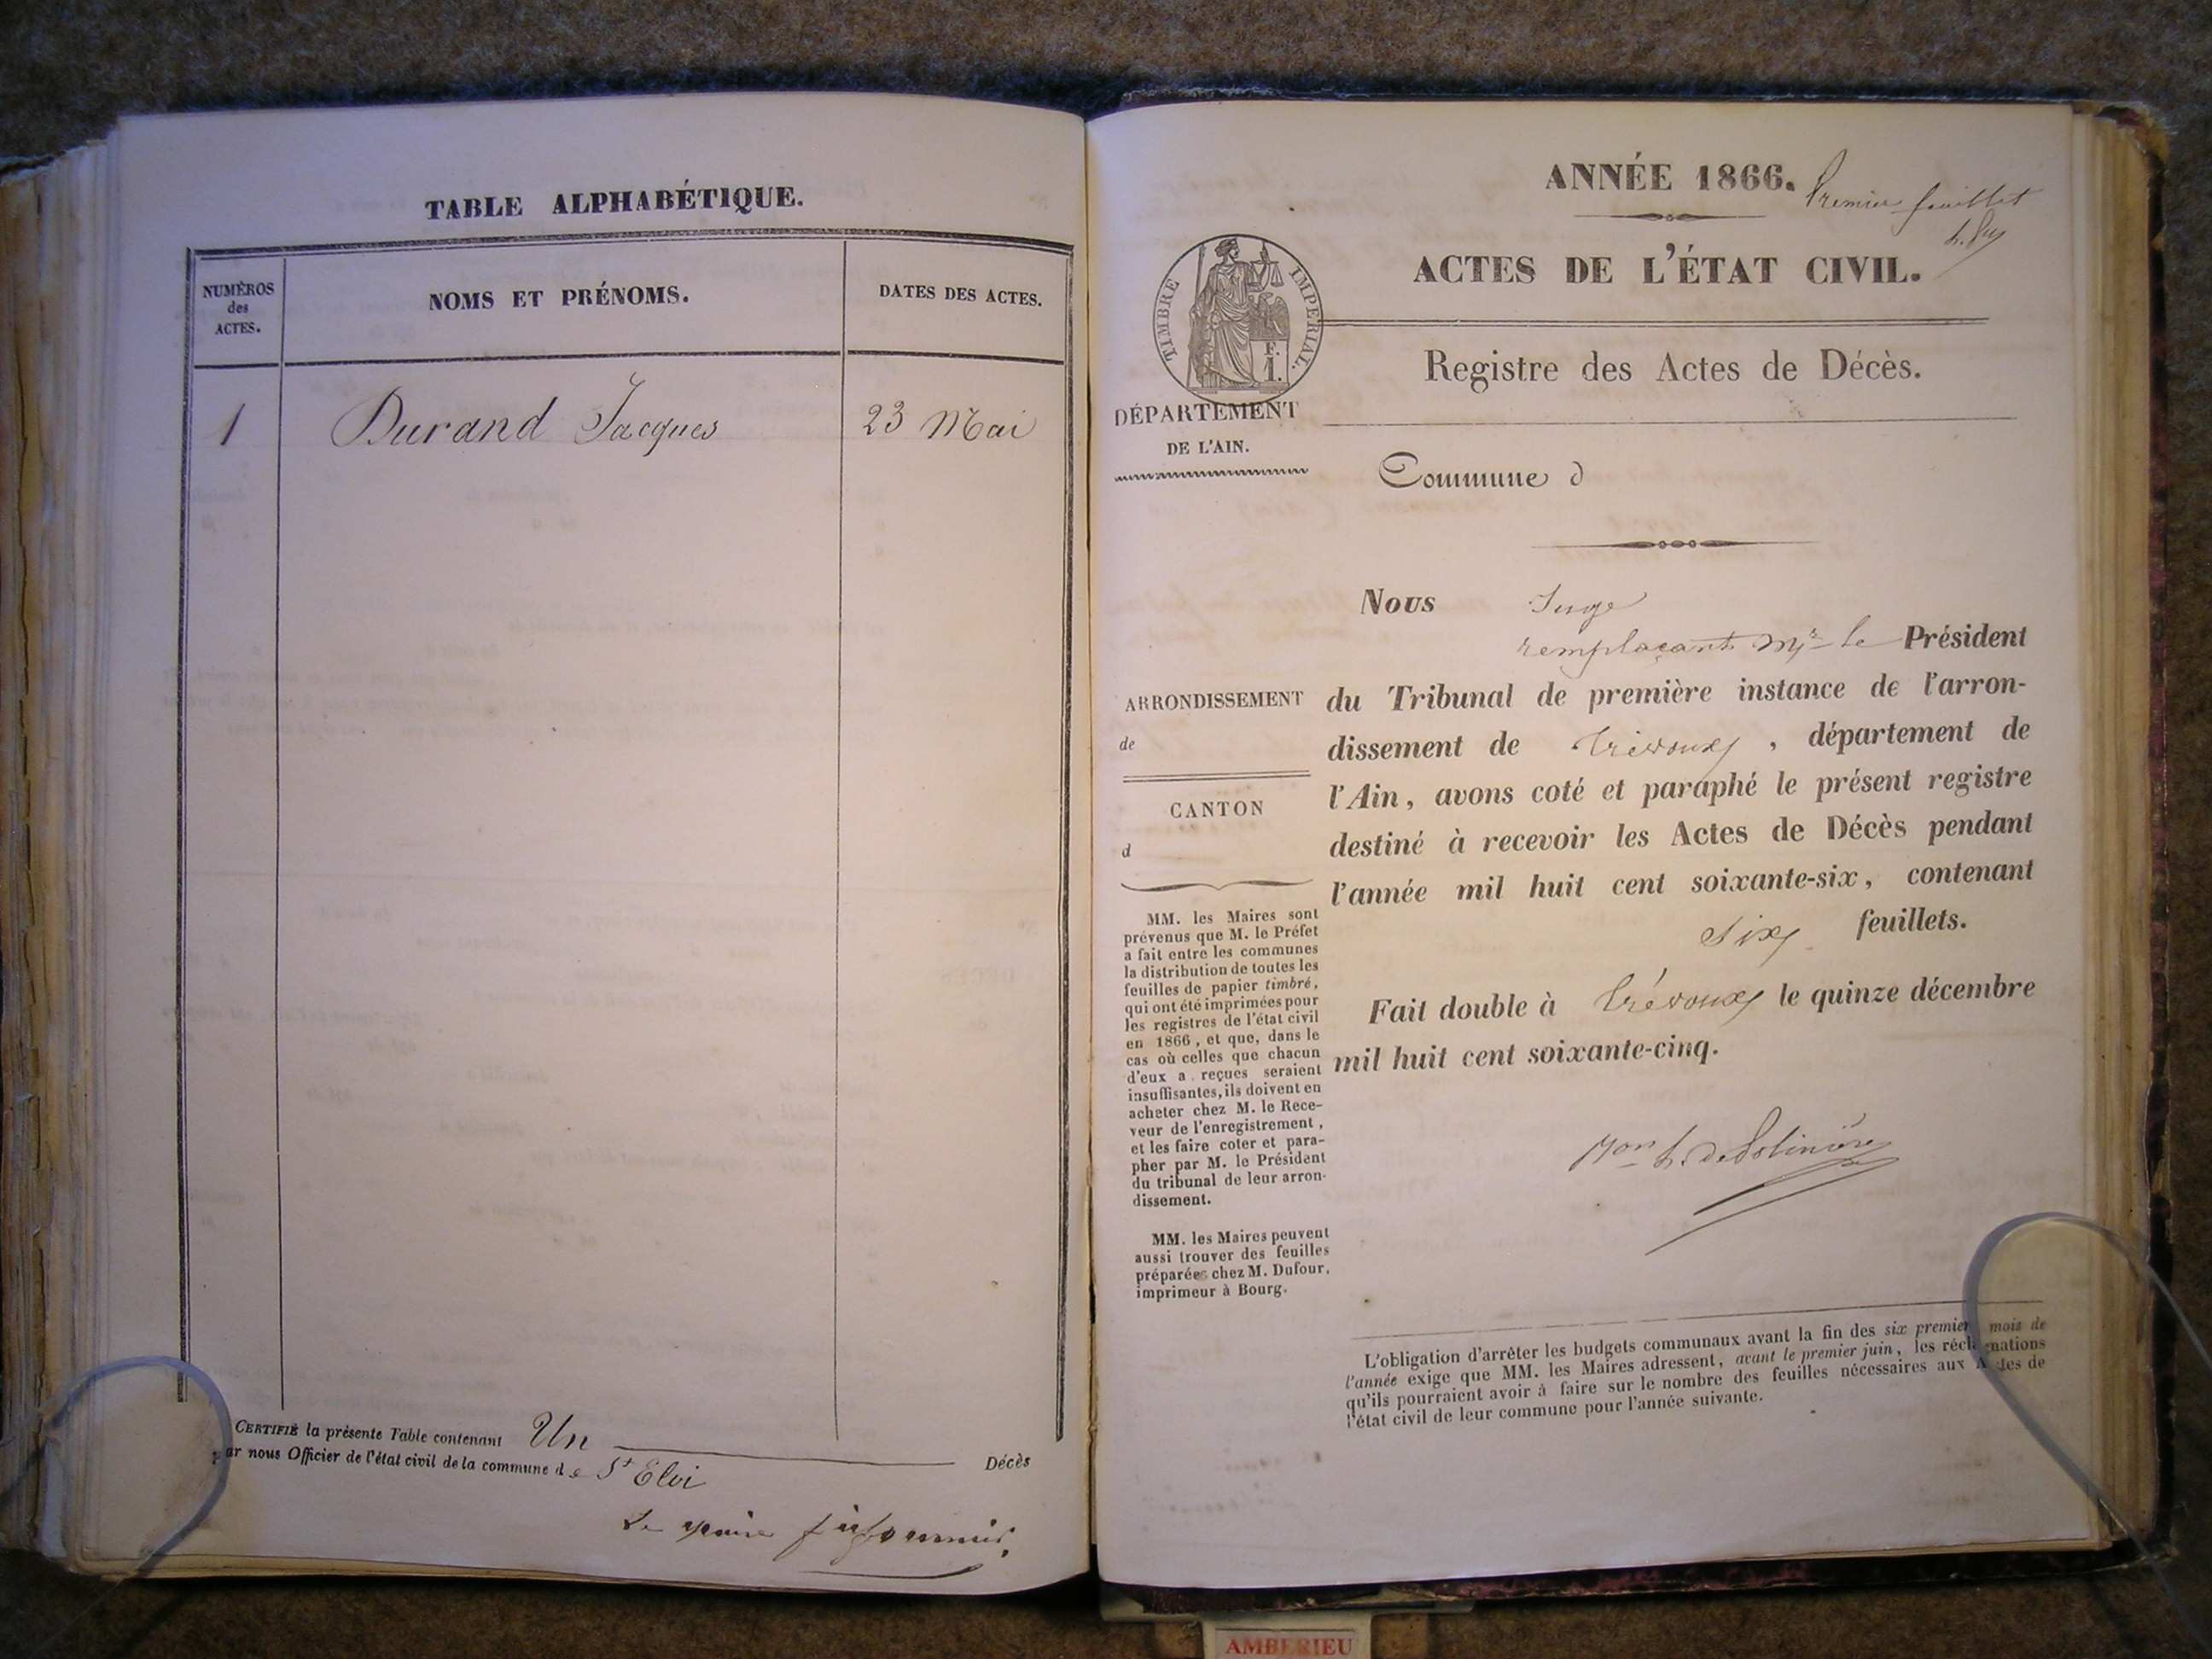 TABLE ALPHABÉTIQUE.
NUMÉROS
des
ACTES.
NOMS ET PRÉNOMS.
DATES DES ACTES.
1 Durand Jacques 23 Mai
CERTIFIÉ la présente Table contenant Un Décès
par nous Officier de l'état civil de la commune de St Eloi
Le maire
ANNÉE 1866.
Premier feuillet
ACTES DE L'ÉTAT CIVIL.
TIMBRE IMPERIAL.
F.
1.
Registre des Actes de Décès.
DÉPARTEMENT
DE L'AIN.
Commune d
Nous Juge
remplaçant Mr le Président
du Tribunal de première instance de l'arron-
dissement de Trévoux, département de
l'Ain, avons coté et paraphé le présent registre
destiné à recevoir les Actes de Décès pendant
l'année mil huit cent soixante-six, contenant
six feuillets.
Fait double à Trévoux le quinze décembre
mil huit cent soixante-cinq.
ARRONDISSEMENT
de
CANTON
d
MM. les Maires sont
prévenus que M. le Préfet
a fait entre les communes
la distribution de toutes les
feuilles de papier timbré,
qui ont été imprimées pour
les registres de l'état civil
en 1866, et que, dans le
cas où celles que chacun
d'eux a reçues seraient
insuffisantes, ils doivent en
acheter chez M. le Rece-
veur de l'enregistrement,
et les faire coter et para-
pher par M. le Président
du tribunal de leur arron-
dissement.
MM. les Maires peuvent
aussi trouver des feuilles
préparées chez M. Dufour,
imprimeur à Bourg.
L'obligation d'arrêter les budgets communaux avant la fin des six premiers mois de
l'année exige que MM. les Maires adressent, avant le premier juin, les réclamations
qu'ils pourraient avoir à faire sur le nombre des feuilles nécessaires aux Actes de
l'état civil de leur commune pour l'année suivante.
AMBERIEU